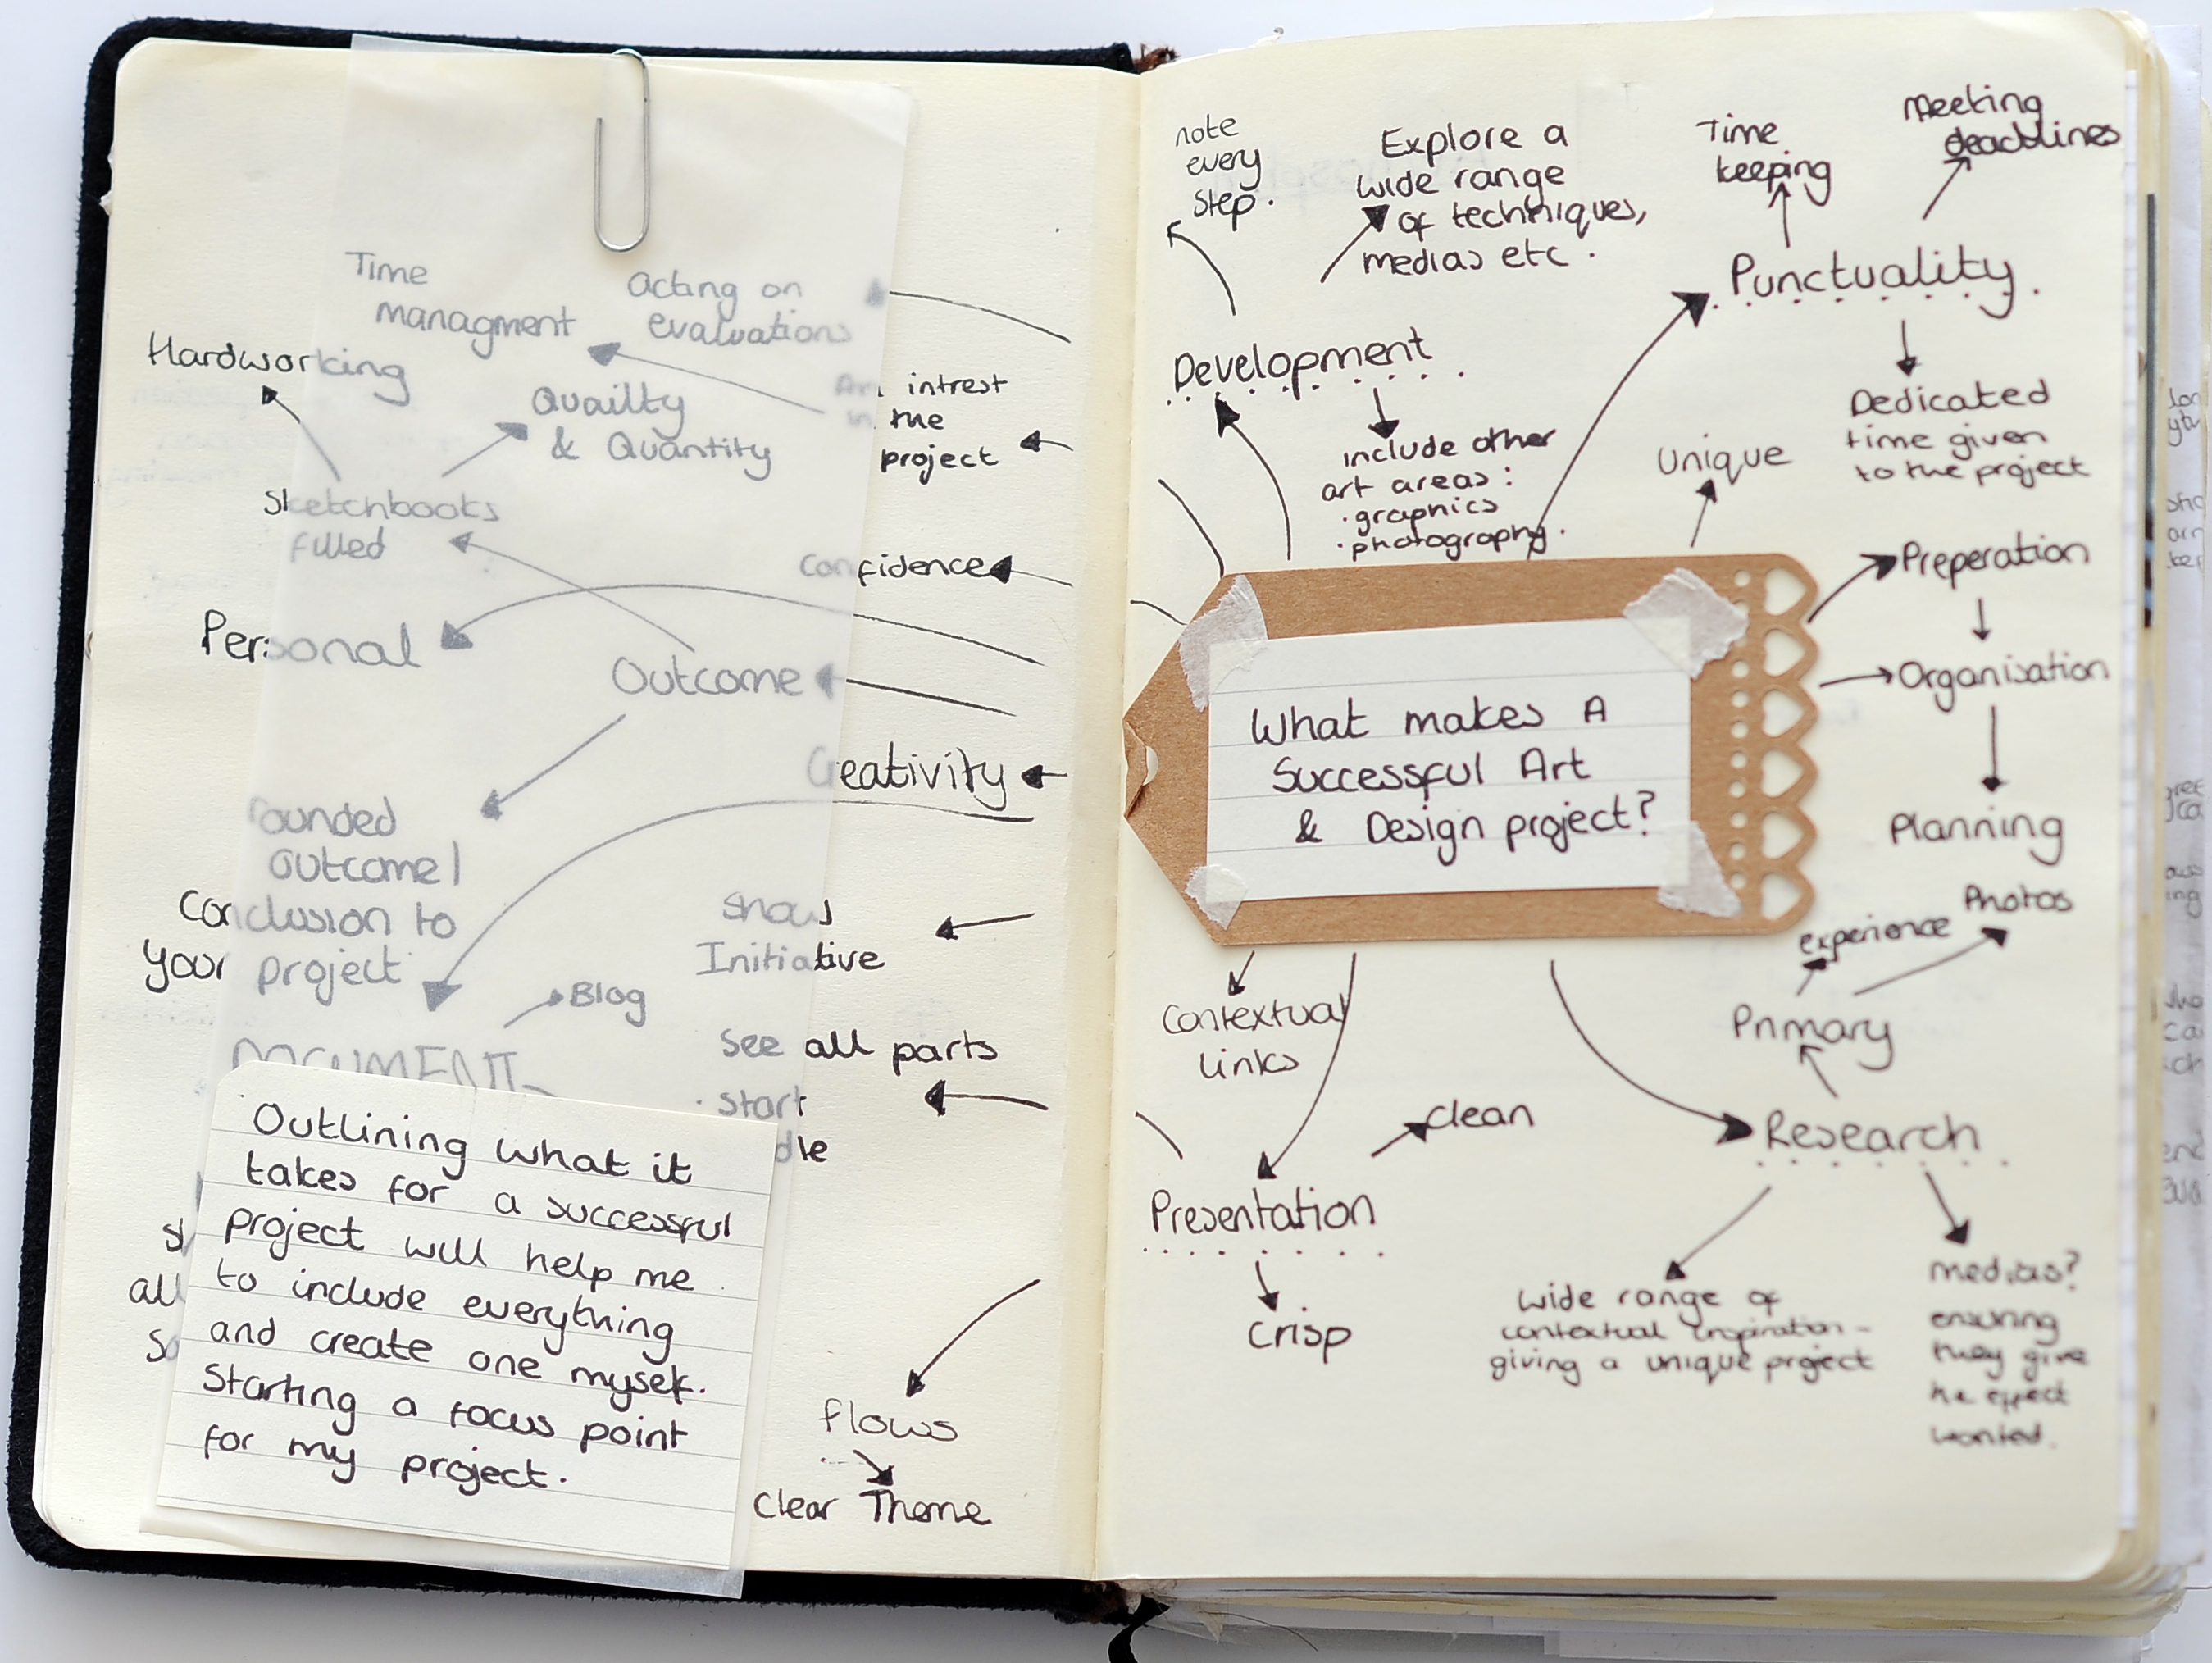 Time
managment
acting on
evaluations
Hardworking
Quailty
& Quantity
An intrest
in the
project
Sketchbooks
filled
Confidence
Personal
Outcome
Creativity
rounded
outcome/
Conclusion to
your project
show
Initiative
Blog
DOCUMENT
see all parts
. start
dle
all
So
Outlining what it
takes for a successful
project will help me
to include everything
and create one myself.
Starting a focus point
for my project.
flows
Clear Theme
note
every
step.
Explore a
wide range
of techniques,
medias etc.
Time
keeping
Meeting
deadlines
Punctuality
Development
Dedicated
time given
to the project
include other
art areas:
. graphics
. photography.
Unique
Preperation
Organisation
Planning
What makes A
Successful Art
& Design project?
Photos
experience
Primary
Contextual
links
Research
clean
Presentation
Crisp
wide range of
contextual inspiration -
giving a unique project
medias?
ensuring
they give
he effect
wanted.